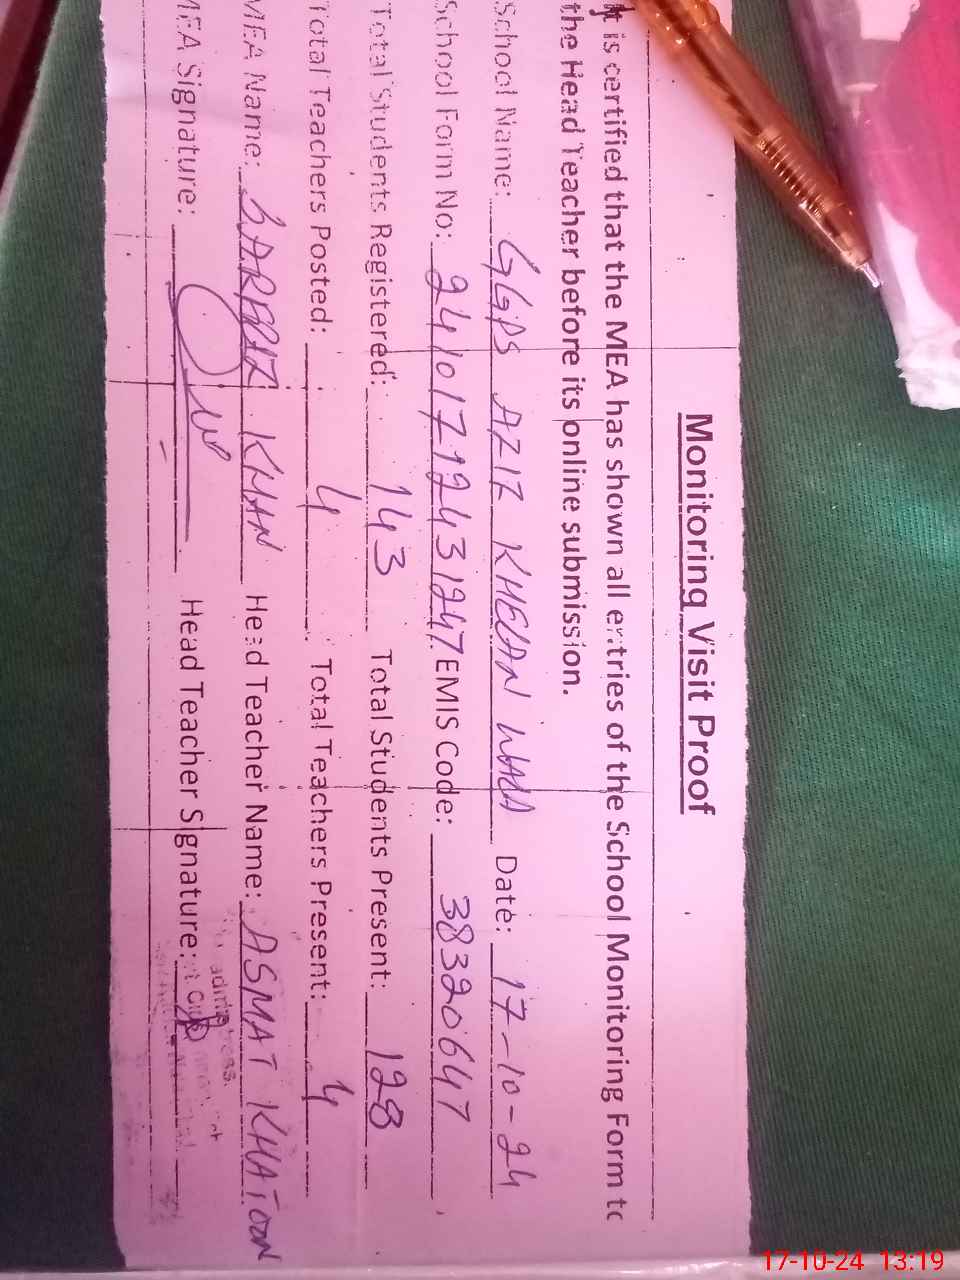 Monitoring Visit Proof
It is certified that the MEA has shown all entries of the School Monitoring Form to
the Head Teacher before its online submission.
School Name: GGPS AZIZ KHELAN WALA Date: 17-10-24
School Form No: 24101712431247 EMIS Code: 38320647
Total Students Registered: 143 Total Students Present: 128
Total Teachers Posted: 4 Total Teachers Present: 4
MEA Name: BABAR KHAN Head Teacher Name: ASMAT KHATOON
MEA Signature: Head Teacher Signature:
17-10-24 13:19